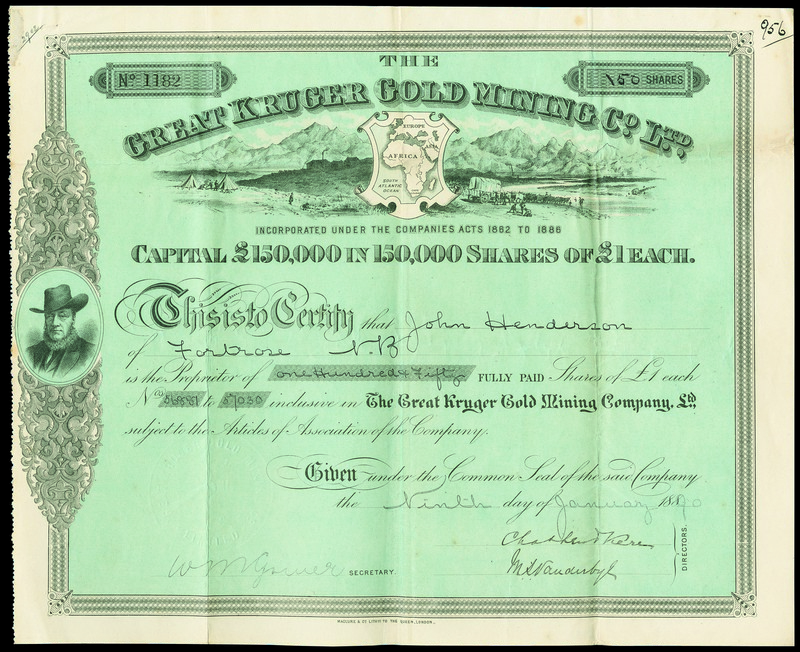 956
THE
No 1182
150 SHARES
GREAT KRUGER GOLD MINING Co. LTD,
EUROPE
ASIA
AFRICA
SOUTH
ATLANTIC
OCEAN
INCORPORATED UNDER THE COMPANIES ACTS 1862 TO 1886
CAPITAL £150,000 IN 150,000 SHARES OF £1 EACH.
This is to Certify that John Henderson
of Fortrose N.B
is the Proprietor of one Hundred & Fifty FULLY PAID Shares of £1 each
Nos 56881 to 57030 inclusive in The Great Kruger Gold Mining Company, Ltd,
subject to the Articles of Association of the Company.
Given under the Common Seal of the said Company
the Ninth day of January 1890
DIRECTORS.
M S Vanderbyl
SECRETARY.
WADDIE & CO LIMITD TO THE QUEEN, LONDON.